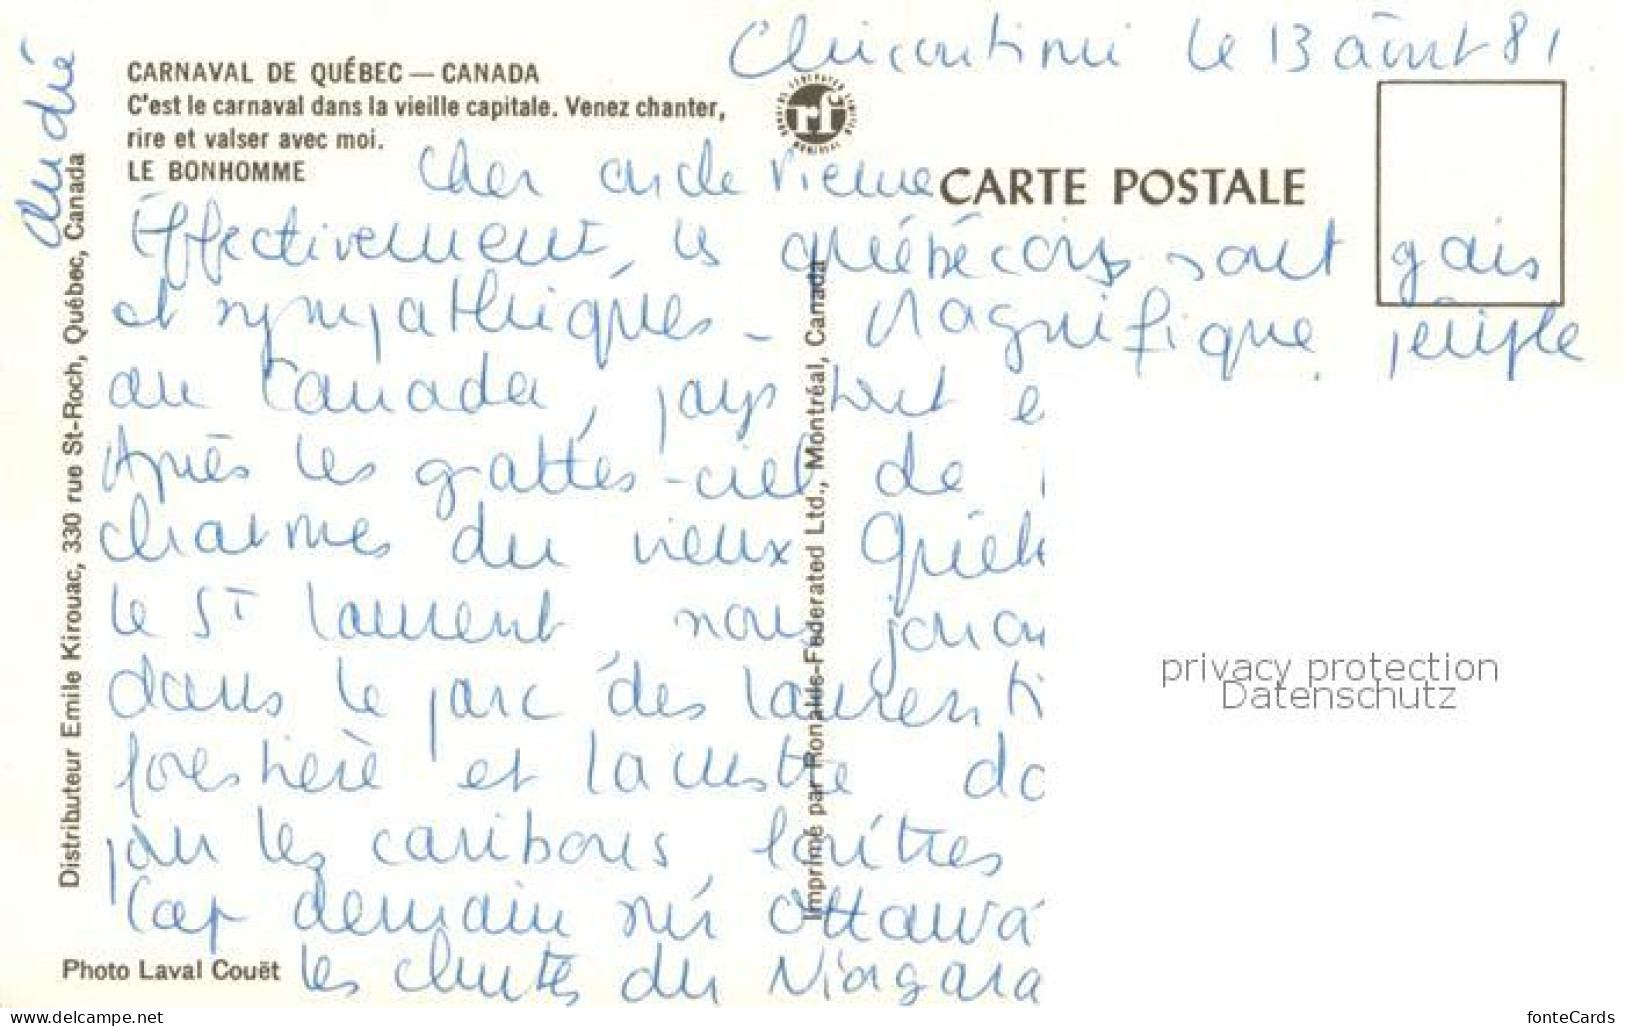 Chicoutimi le 13 août 81
CARNAVAL DE QUÉBEC — CANADA
C'est le carnaval dans la vieille capitale. Venez chanter,
rire et valser avec moi.
LE BONHOMME
CARTE POSTALE
Cher
Effectivement, les québécois sont gais
et sympathiques - Magnifique périple
au Canada, pays tout e
Après les grattes-ciel de
charmes du vieux Québ
le St Laurent nous
dans le parc des Laurenti
forestière et lacustre do
par les caribous, loutres
Cap demain sur Ottawa
les chutes du Niagara
André
Distributeur Emile Kirouac, 330 rue St-Roch, Québec, Canada
Imprimé par Ronalds-Federated Ltd., Montréal, Canada
Photo Laval Couët
privacy protection
Datenschutz
www.delcampe.net
fonteCards